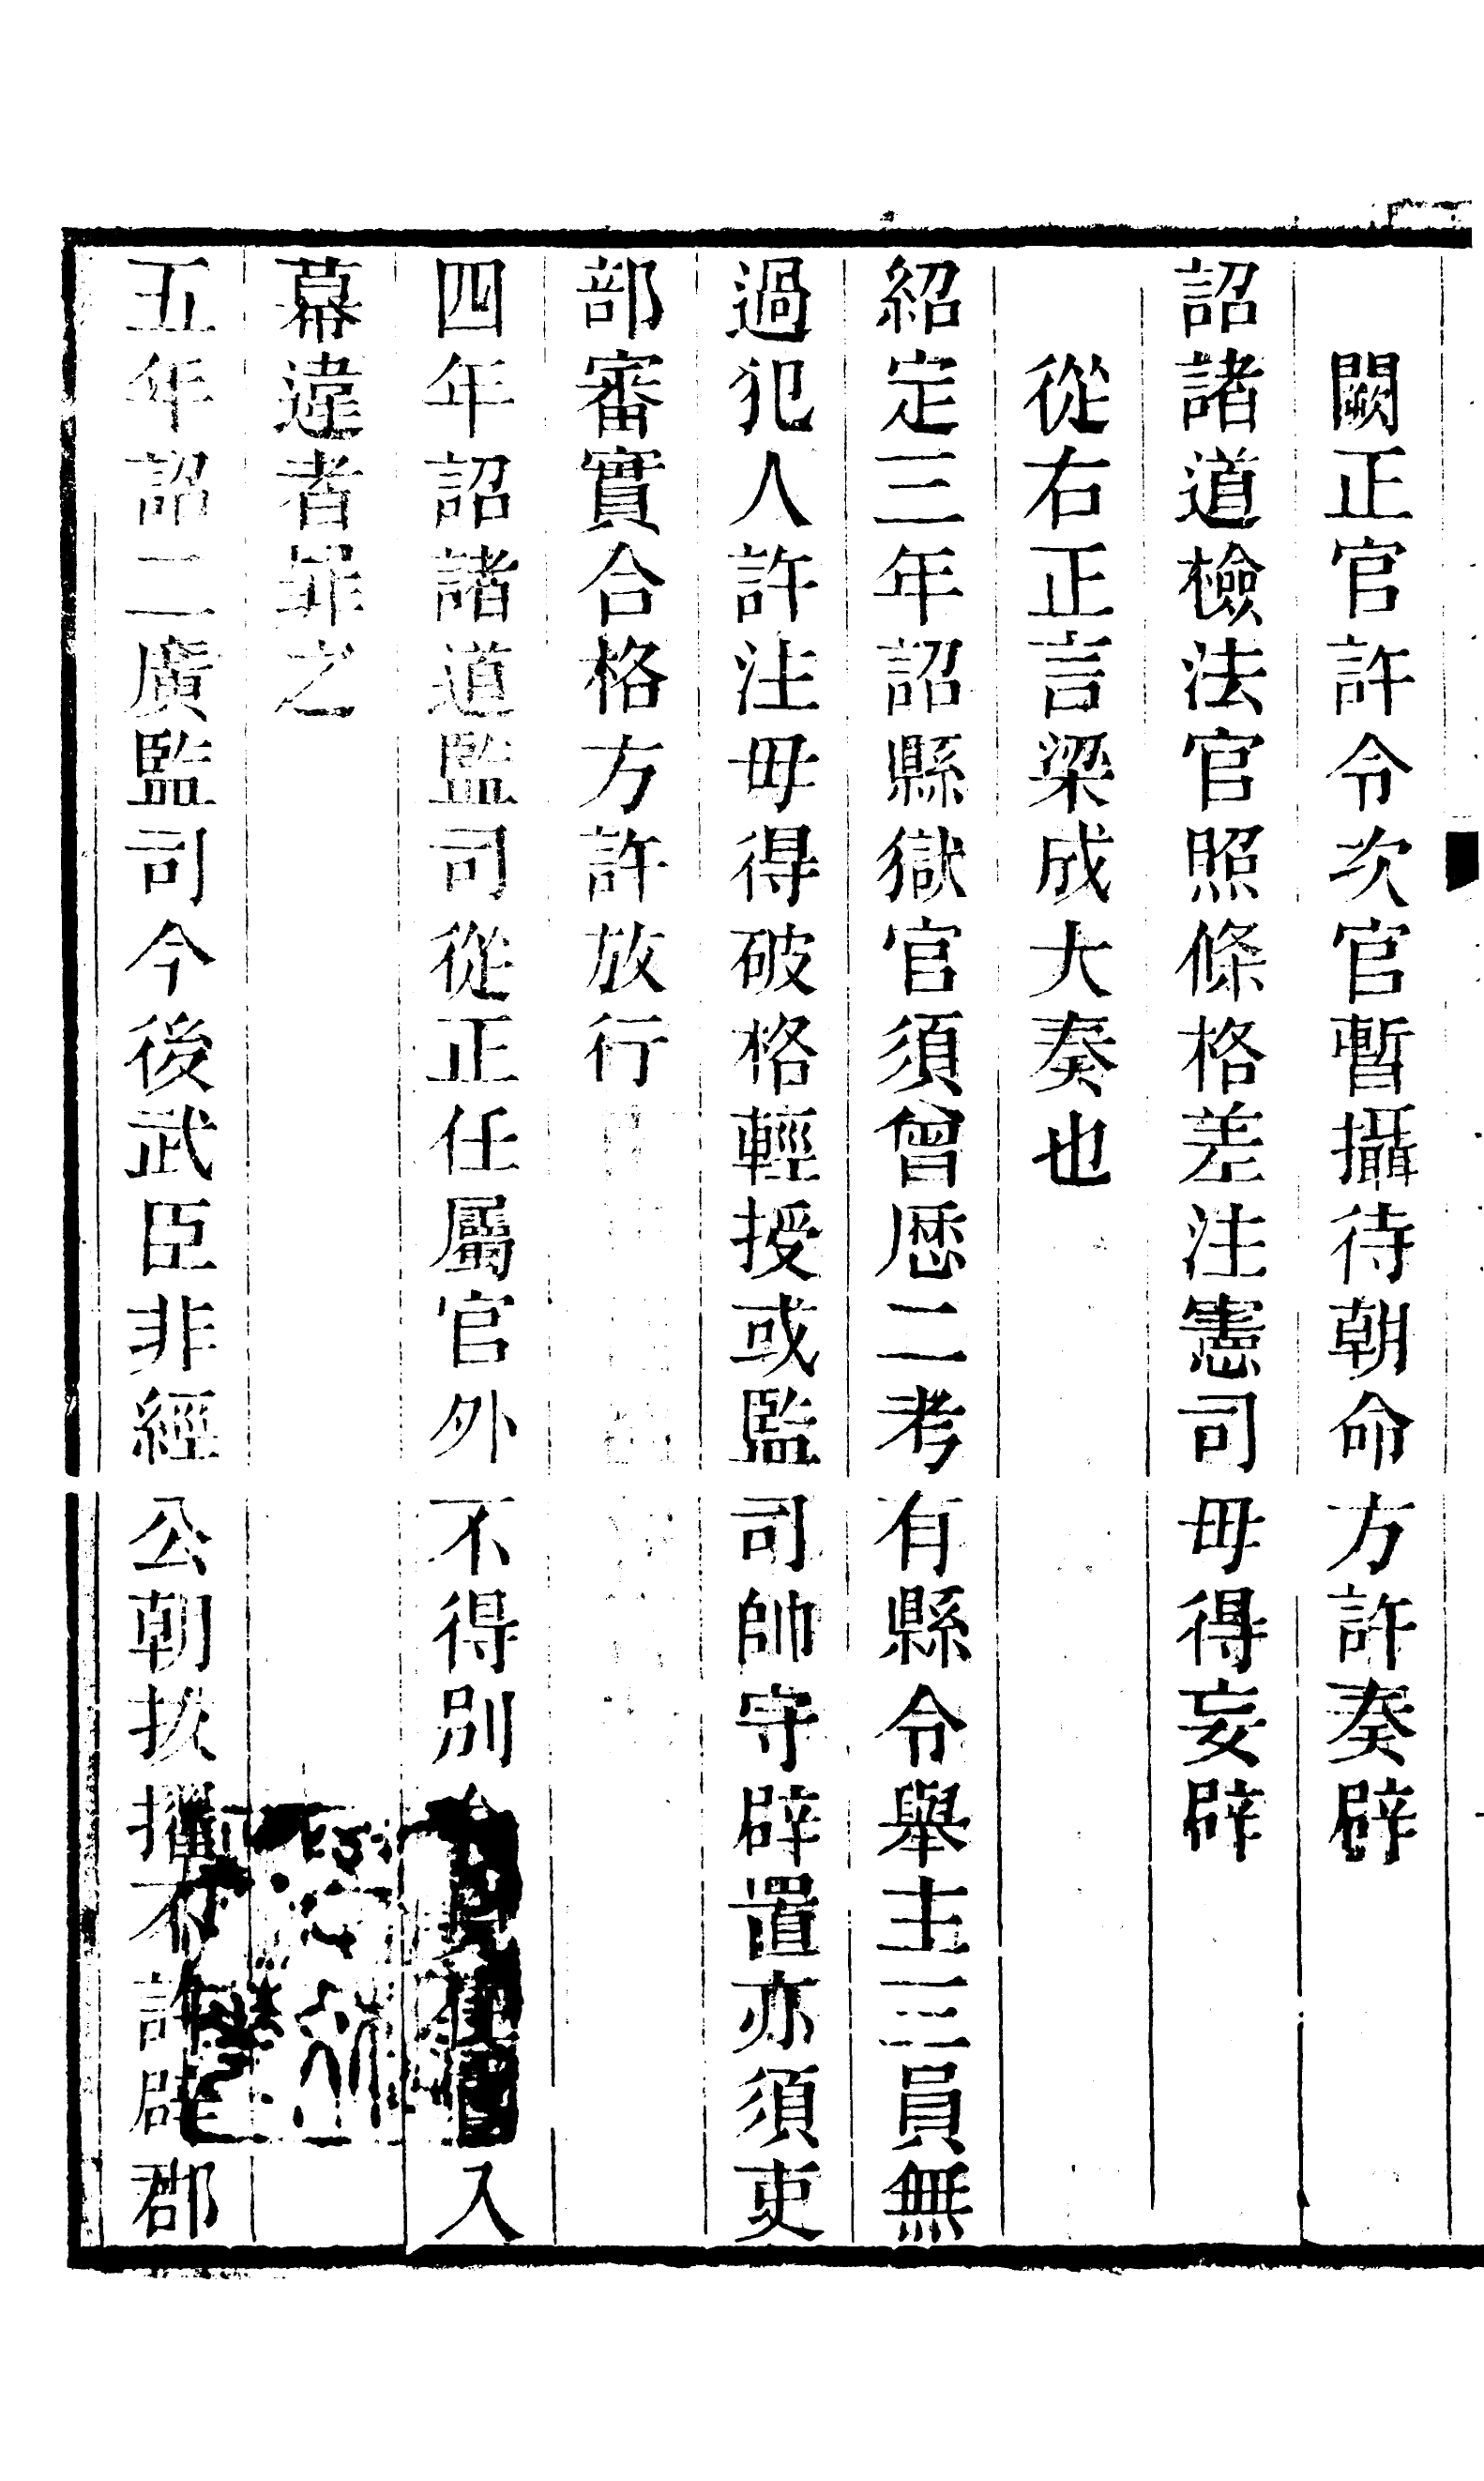 闕正官許令次官暫攝待朝命方許奏辟
詔諸道檢法官照條格差注憲司毋得妄辟
從右正言梁成大奏也
紹定三年詔縣獄官須曾歴二考有縣令舉主三員無
過犯人許注毋得破格輕授或監司帥守辟置亦須吏
部審實合格方許放行
四年詔諸道監司從正任屬官外不得別入
幕違者罪之
五年詔二廣監司今後武臣非經公朝拔擢不許辟郡